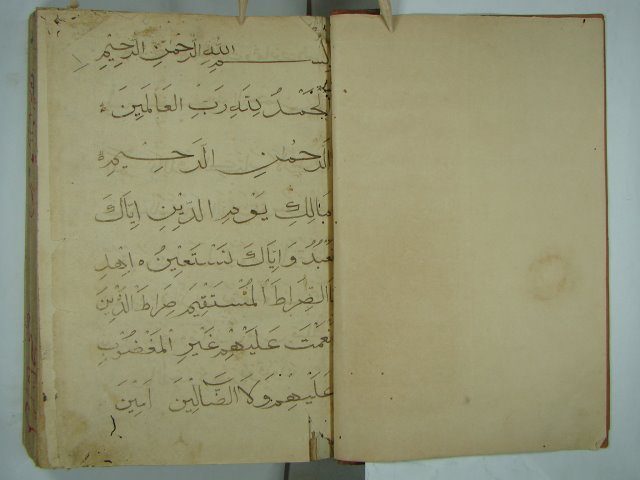 بِسْــــمِ اللهِ الرَّحْمٰنِ الرَّحِيْمِ
اَلْحَمْدُ لِلّٰهِ رَبِّ الْعَالَمِيْنَ
الرَّحْمٰنِ الرَّحِـــيْمِ
مَالِكِ يَوْمِ الدِّيْنِ اِيَّاكَ
نَعْبُدُ وَاِيَّاكَ نَسْتَعِيْنُ ه اِهْدِ
نَا الصِّرَاطَ الْمُسْتَقِيْمَ صِرَاطَ الَّذِيْنَ
اَنْعَمْتَ عَلَيْهِمْ غَيْرِ الْمَغْضُوْبِ
عَلَيْهِمْ وَلَا الضَّالِّيْنَ اٰمِيْنَ